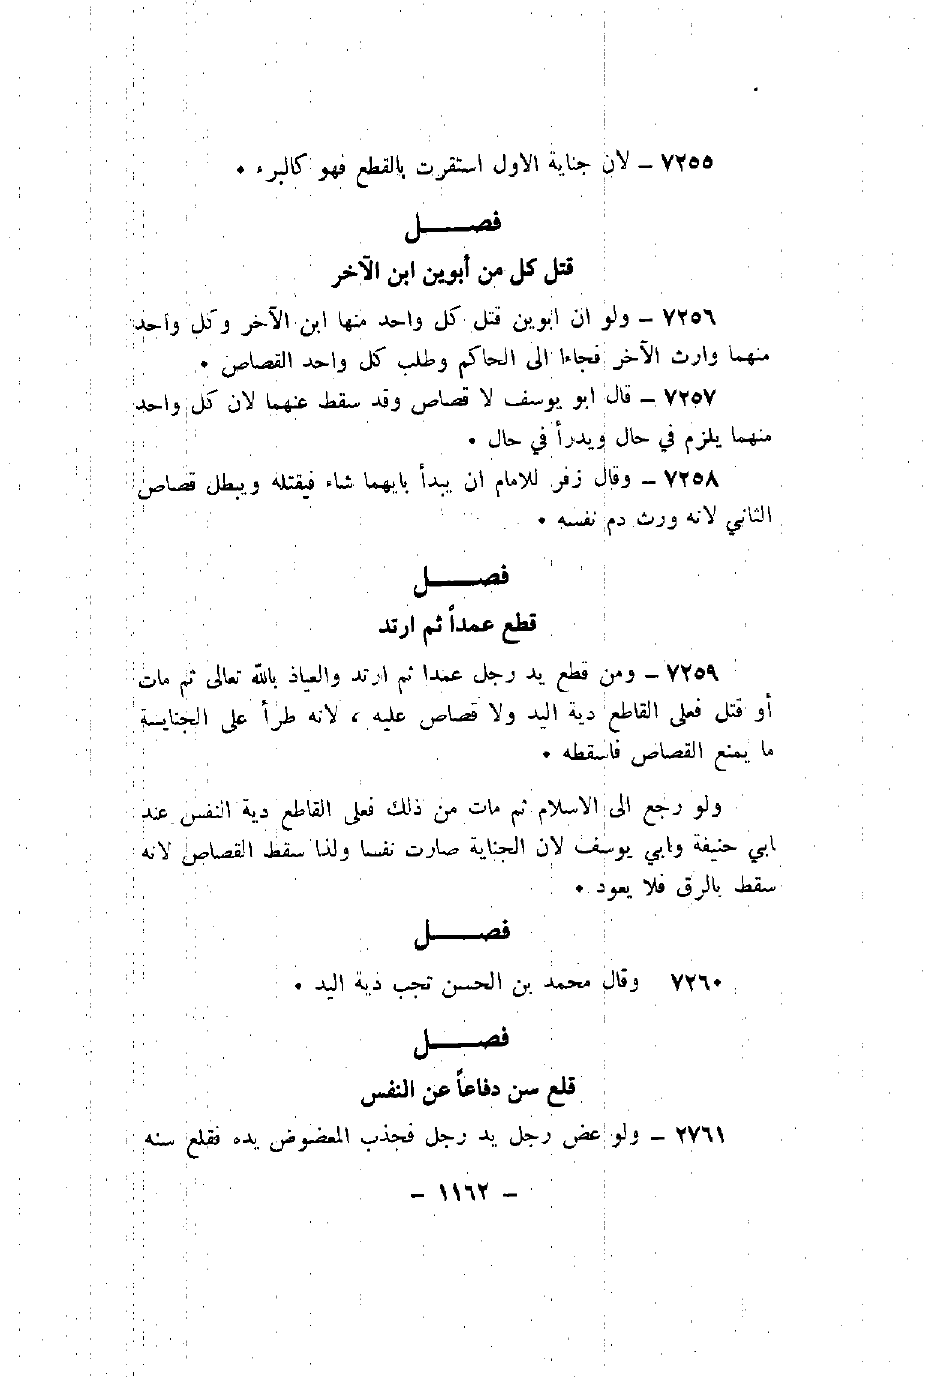 ٧٢٥٥ – لان جناية الاول استقرت بالقطع فهو كالبرء ٠
فصـــــل
قتل كل من أبوين ابن الآخر
٧٢٥٦ – ولو ان ابوين قتل كل واحد منها ابن الآخر وكل واحد
منهما وارث الآخر فجاءا الى الحاكم وطلب كل واحد القصاص ٠
٧٢٥٧ – قال ابو يوسف لا قصاص وقد سقط عنهما لان كل واحد
منهما يلزم في حال ويدرأ في حال ٠
٧٢٥٨ – وقال زفر للامام ان يبدأ بايهما شاء فيقتله ويبطل قصاص
الثاني لانه ورث دم نفسه ٠
فصـــــل
قطع عمداً ثم ارتد
٧٢٥٩ – ومن قطع يد رجل عمدا ثم ارتد والعياذ بالله تعالى ثم مات
أو قتل فعلى القاطع دية اليد ولا قصاص عليه ، لانه طرأ على الجنايـة
ما يمنع القصاص فاسقطه ٠
ولو رجع الى الاسلام ثم مات من ذلك فعلى القاطع دية النفس عند
ابي حنيفة وابي يوسف لان الجناية صارت نفسا ولذا سقط القصاص لانه
سقط بالرق فلا يعود ٠
فصـــــل
٧٢٦٠ وقال محمد بن الحسن تجب دية اليد ٠
فصـــــل
قلع سن دفاعاً عن النفس
٢٧٦١ – ولو عض رجل يد رجل فجذب المعضوض يده فقلع سنه
– ١١٦٢ –